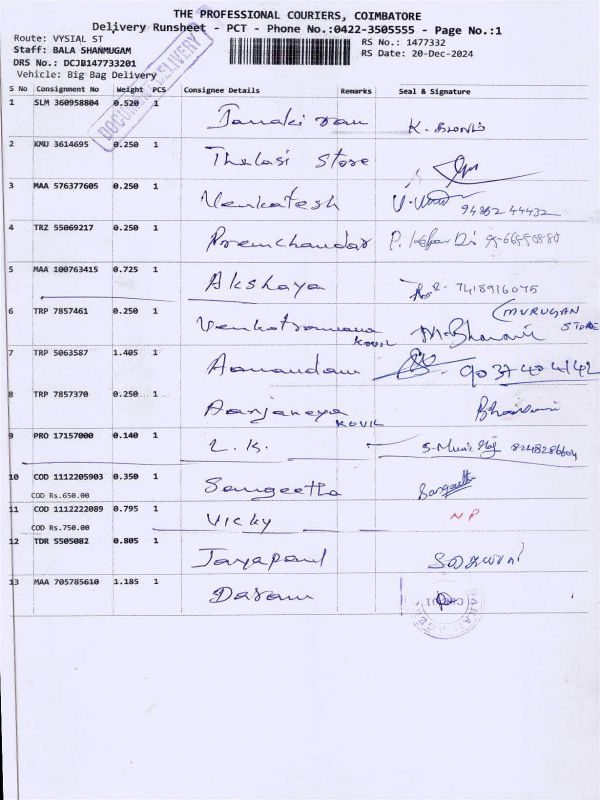 THE PROFESSIONAL COURIERS, COIMBATORE
Delivery Runsheet - PCT - Phone No.:0422-3505555 - Page No.:1
Route: VYSIAL ST
RS No.: 1477332
Staff: BALA SHANMUGAM
RS Date: 20-Dec-2024
DRS No.: DCJB147733201
Vehicle: Big Bag Delivery
DOCUMENT DELIVERY
S No Consignment No Weight PCS Consignee Details Remarks Seal & Signature
1 SLM 360958804 0.520 1 Janaki ram K.
2 KMU 3614695 0.250 1 Thulasi Store
3 MAA 576377605 0.250 1 Venkatesh 94862 44432
4 TRZ 55069217 0.250 1 Premchandar P.
5 MAA 100763415 0.725 1 Akshaya 7418916075
6 TRP 7857461 0.250 1 Venkatramana KOVIL M. Bhavani (MURUGAN STORE
7 TRP 5063587 1.405 1 Aanandam 9037404142
8 TRP 7857370 0.250 1 Aanjaneya KOVIL Bhavani
9 PRO 17157000 0.140 1 L.K. 8248286604
10 COD 1112205903 0.350 1 Sangeetha Sangeetha
COD Rs.650.00
11 COD 1112222089 0.795 1 Vicky NP
COD Rs.750.00
12 TDR 5505082 0.805 1 Jayapaul
13 MAA 705785610 1.185 1 Daram